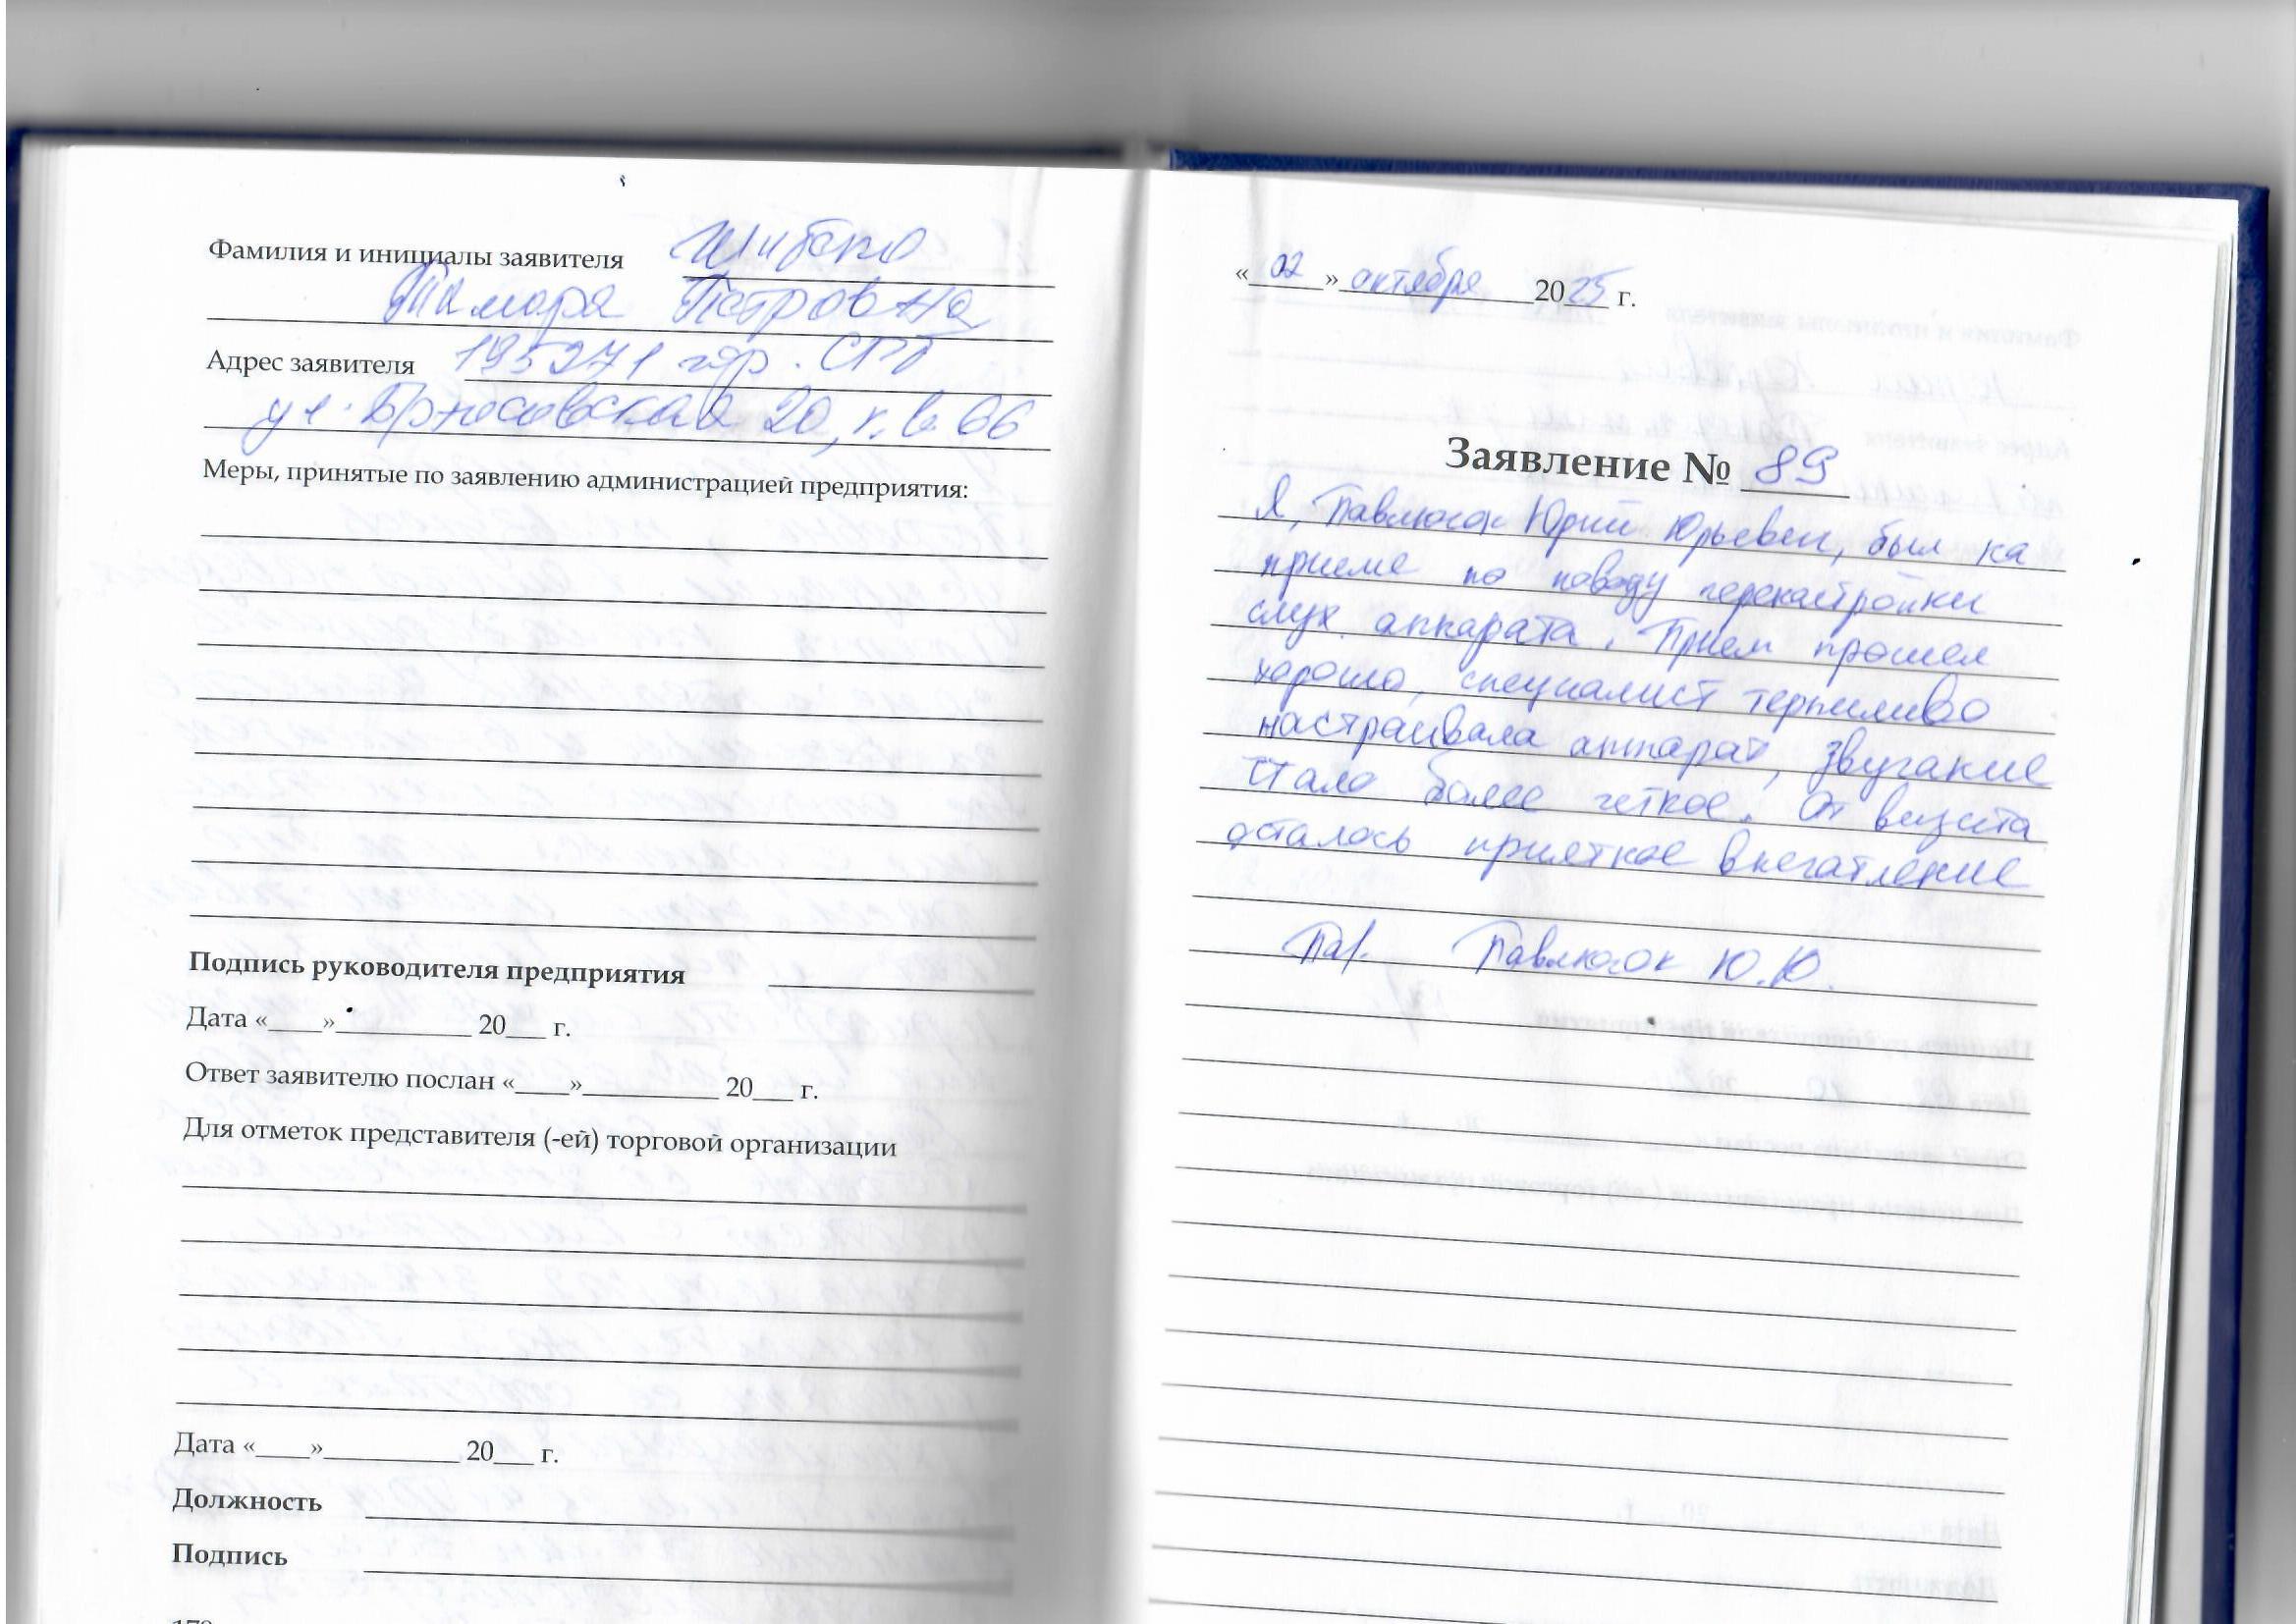 Фамилия и инициалы заявителя Шибко
Тамара Петровна
Адрес заявителя 195271 гор. СПб
ул. Брюсовская 20, кв. 66
Меры, принятые по заявлению администрацией предприятия:
Подпись руководителя предприятия
Дата «____»__________ 20___ г.
Ответ заявителю послан «____»__________ 20___ г.
Для отметок представителя (-ей) торговой организации
Дата «____»__________ 20___ г.
Должность
Подпись
« 02 » октября 2025 г.
Заявление № 89
Я, Павлючок Юрий Юрьевич, был на
приеме по поводу перенастройки
слух. аппарата. Прием прошел
хорошо, специалист терпиливо
настраивала аппарат, звучание
стало более четкое. От визита
осталось приятное впечатление
Павлючок Ю.Ю.